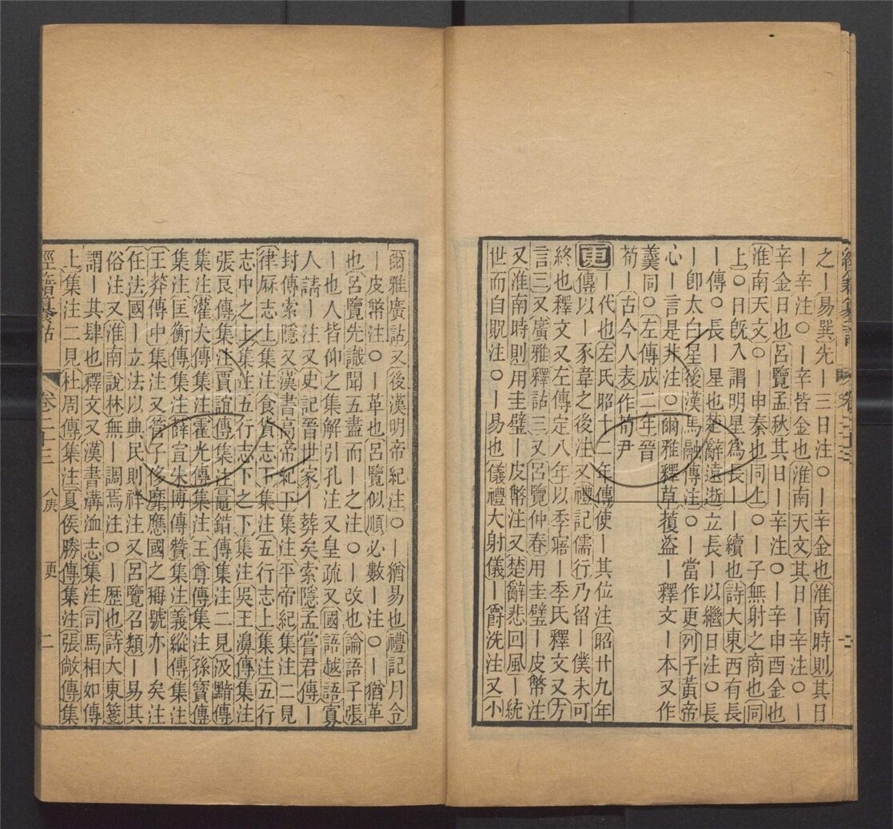 之｜易巽先｜三日注〇｜辛金也淮南時則其日
｜辛注〇｜辛皆金也淮南天文其日｜辛注〇｜
辛金日也呂覽孟秋其日｜辛注〇｜辛申酉金也
淮南天文〇｜申泰也同上〇｜子無射之商也同
上〇日旣入謂明星爲長｜｜續也詩大東西有長
｜傳〇長｜星也楚辭遠逝立長｜以繼日注〇長
｜卽太白星後漢馬融傳注〇｜當作更列子黃帝
心｜言是非注〇爾雅釋草蕧盗｜釋文｜本又作
羹同〇左傳成二年晉
荀｜古今人表作荀尹
更｜代也左氏昭十二年傳使｜其位注昭廿九年
傳以｜豕韋之後注又禮記儒行乃留｜僕未可
終也釋文又左傳定八年以季寤｜季氏釋文又方
言三又廣雅釋詁三又呂覽仲春用圭璧｜皮幣注
又淮南時則用圭璧｜皮幣注又楚辭悲回風｜統
世而自貺注〇｜易也儀禮大射儀｜爵洗注又小
爾雅廣詁又後漢明帝紀注〇｜猶易也禮記月令
｜皮幣注〇｜革也呂覽似順必數｜注〇｜猶革
也呂覽先識聞五盡而｜之注〇｜改也論語子張
｜也人皆仰之集解引孔注又皇疏又國語越語寡
人請｜注又史記晉世家｜葬矣索隱孟嘗君傳｜
封傳索隱又漢書高帝紀下集注平帝紀集注二見
律厤志上集注食貨志下集注五行志上集注五行
志中之上集注五行志下之下集注吳王濞傳集注
張良傳集注賈誼傳集注鼂錯傳集注二見汲黯傳
集注灌夫傳集注霍光傳集注王尊傳集注孫寶傳
集注匡衡傳集注薛宣朱博傳贊集注義縱傳集注
王莽傳中集注又管子侈靡應國之稱號亦｜矣注
任法國｜立法以典民則祥注又呂覽召類｜易其
俗注又淮南說林無｜調焉注〇｜歷也詩大東箋
謂｜其肆也釋文又漢書溝洫志集注司馬相如傳
上集注二見杜周傳集注夏侯勝傳集注張敞傳集
經籍籑詁 卷二十三 八庚 更 二